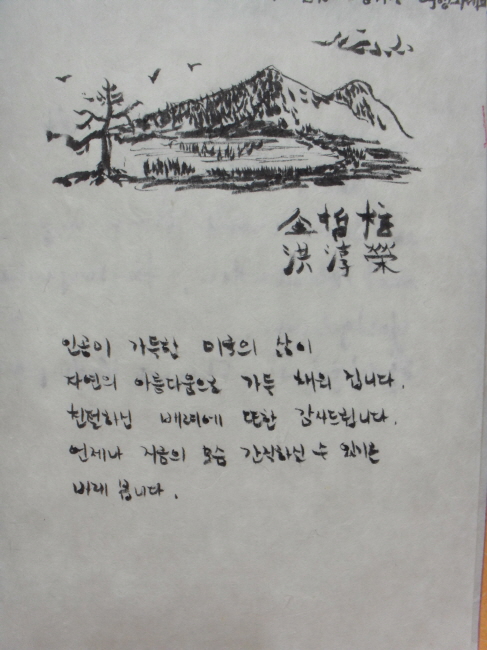 金栢柱
洪淳榮
인공이 가득한 미국의 삶이
자연의 아름다움으로 가득 채워 집니다.
친절하신 배려에 또한 감사드립니다.
언제나 지금의 모습 간직하실 수 있기를
바래 봅니다.